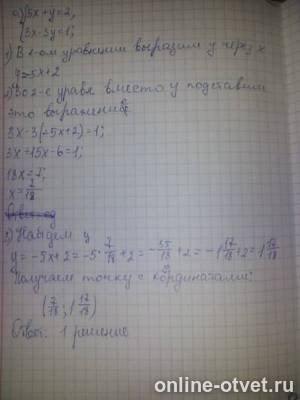 а) {5x+y=2,
{3x-3y=1;
1) В 1-ом уравнении выразим у через х
y=-5x+2
2) Во 2-е уравн вместо у подставим
это выражение:
3x-3(-5x+2)=1;
3x+15x-6=1;
18x=7;
x=7/18
3) Найдем у
y=-5x+2=-5·7/18+2=-35/18+2=-1 17/18+2=1 17/18
Получаем точку с координатами:
(7/18; 1 17/18)
Ответ: 1 решение
online-otvet.ru